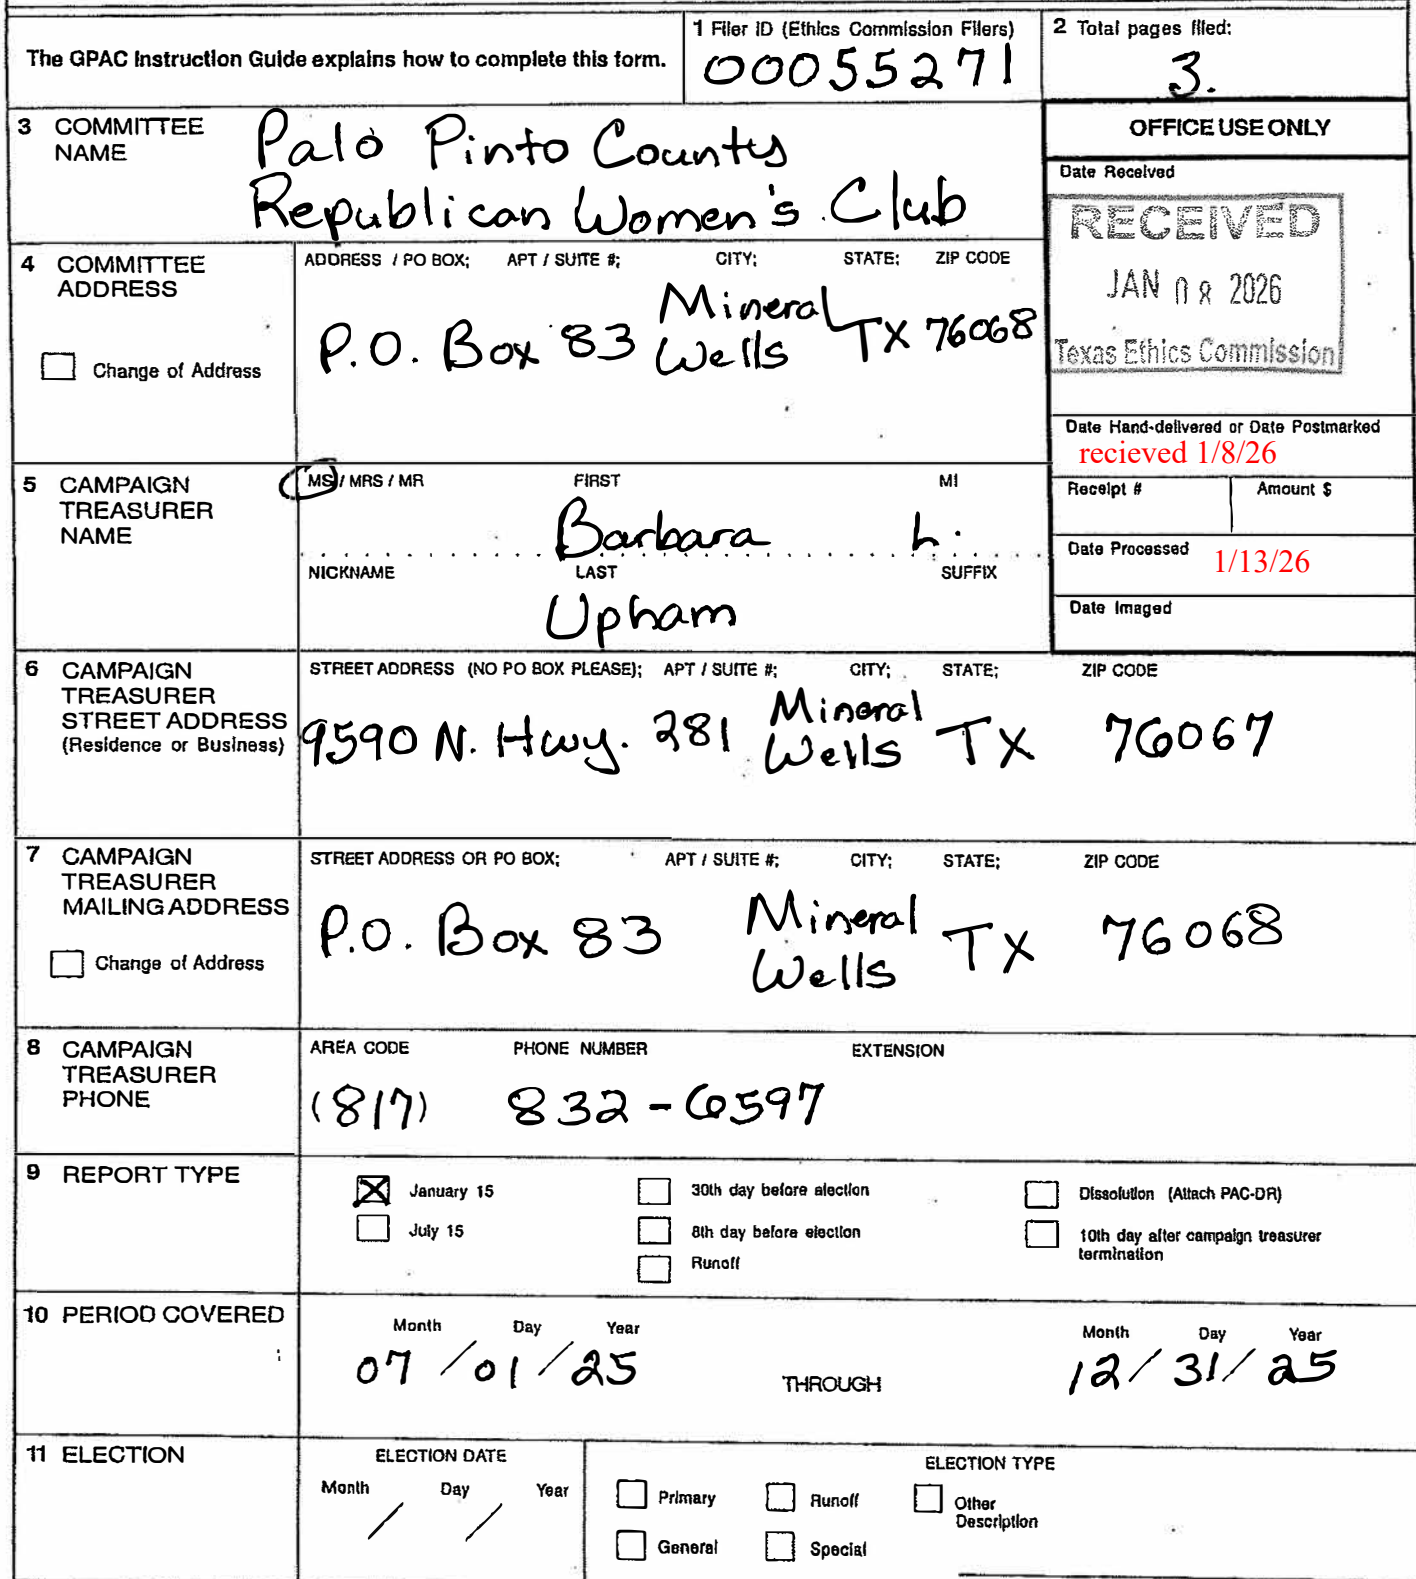 The GPAC Instruction Guide explains how to complete this form.
1 Filer ID (Ethics Commission Filers)
00055271
2 Total pages filed:
3.
3 COMMITTEE NAME
Palo Pinto County
Republican Women's Club
OFFICE USE ONLY
Date Received
RECEIVED
JAN 08 2026
Texas Ethics Commission
4 COMMITTEE ADDRESS
ADDRESS / PO BOX; APT / SUITE #; CITY; STATE; ZIP CODE
P.O. Box 83 Mineral Wells TX 76068
Change of Address
Date Hand-delivered or Date Postmarked
recieved 1/8/26
Receipt #
Amount $
Date Processed 1/13/26
Date Imaged
5 CAMPAIGN TREASURER NAME
MS / MRS / MR FIRST MI
Barbara L.
NICKNAME LAST SUFFIX
Upham
6 CAMPAIGN TREASURER STREET ADDRESS
(Residence or Business)
STREET ADDRESS (NO PO BOX PLEASE); APT / SUITE #; CITY; STATE; ZIP CODE
9590 N. Hwy. 281 Mineral Wells TX 76067
7 CAMPAIGN TREASURER MAILING ADDRESS
Change of Address
STREET ADDRESS OR PO BOX; APT / SUITE #; CITY; STATE; ZIP CODE
P.O. Box 83 Mineral Wells TX 76068
8 CAMPAIGN TREASURER PHONE
AREA CODE PHONE NUMBER EXTENSION
(817) 832-6597
9 REPORT TYPE
January 15
July 15
30th day before election
8th day before election
Runoff
Dissolution (Attach PAC-DR)
10th day after campaign treasurer termination
10 PERIOD COVERED
Month Day Year
07/01/25
THROUGH
Month Day Year
12/31/25
11 ELECTION
ELECTION DATE
Month Day Year
/ /
ELECTION TYPE
Primary
Runoff
Other Description
General
Special